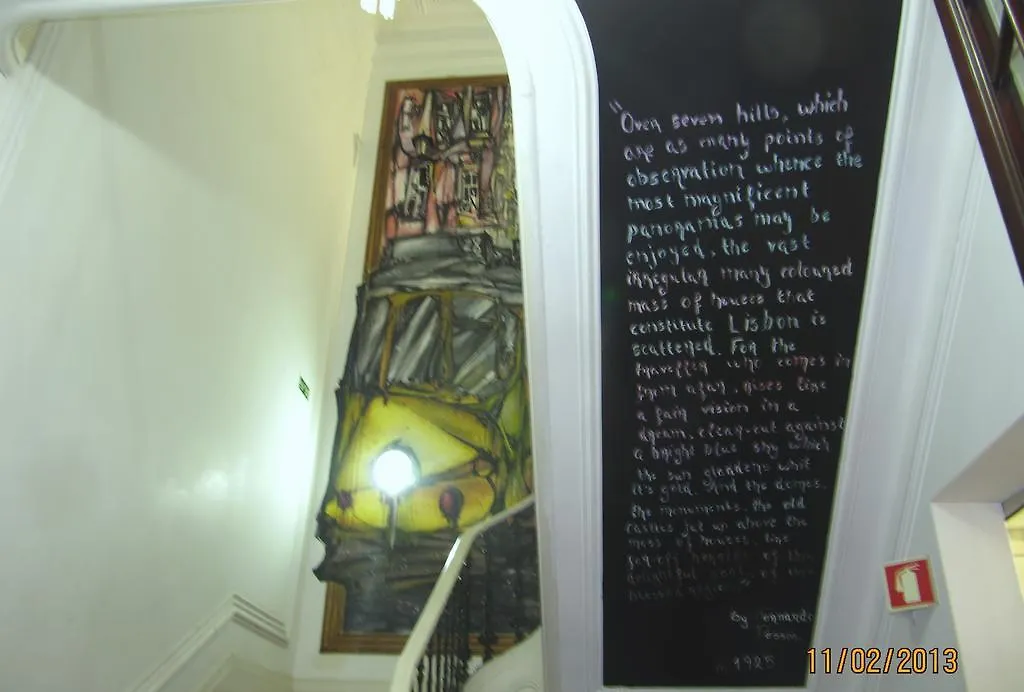 "Over seven hills, which
are as many points of
observation whence the
most magnificent
panoramas may be
enjoyed, the vast
irregular many coloured
mass of houses that
constitute Lisbon is
scattered. For the
traveller who comes in
from afar, rises like
a fair vision in a
dream, clear-cut against
a bright blue sky which
the sun gladdens whit
it's gold. And the domes,
the monuments, the old
castles jut up above the
mass of houses, like
far-off heralds of this
delightful seat, of this
blessed region"
By Fernando
Pessoa
1925
11/02/2013